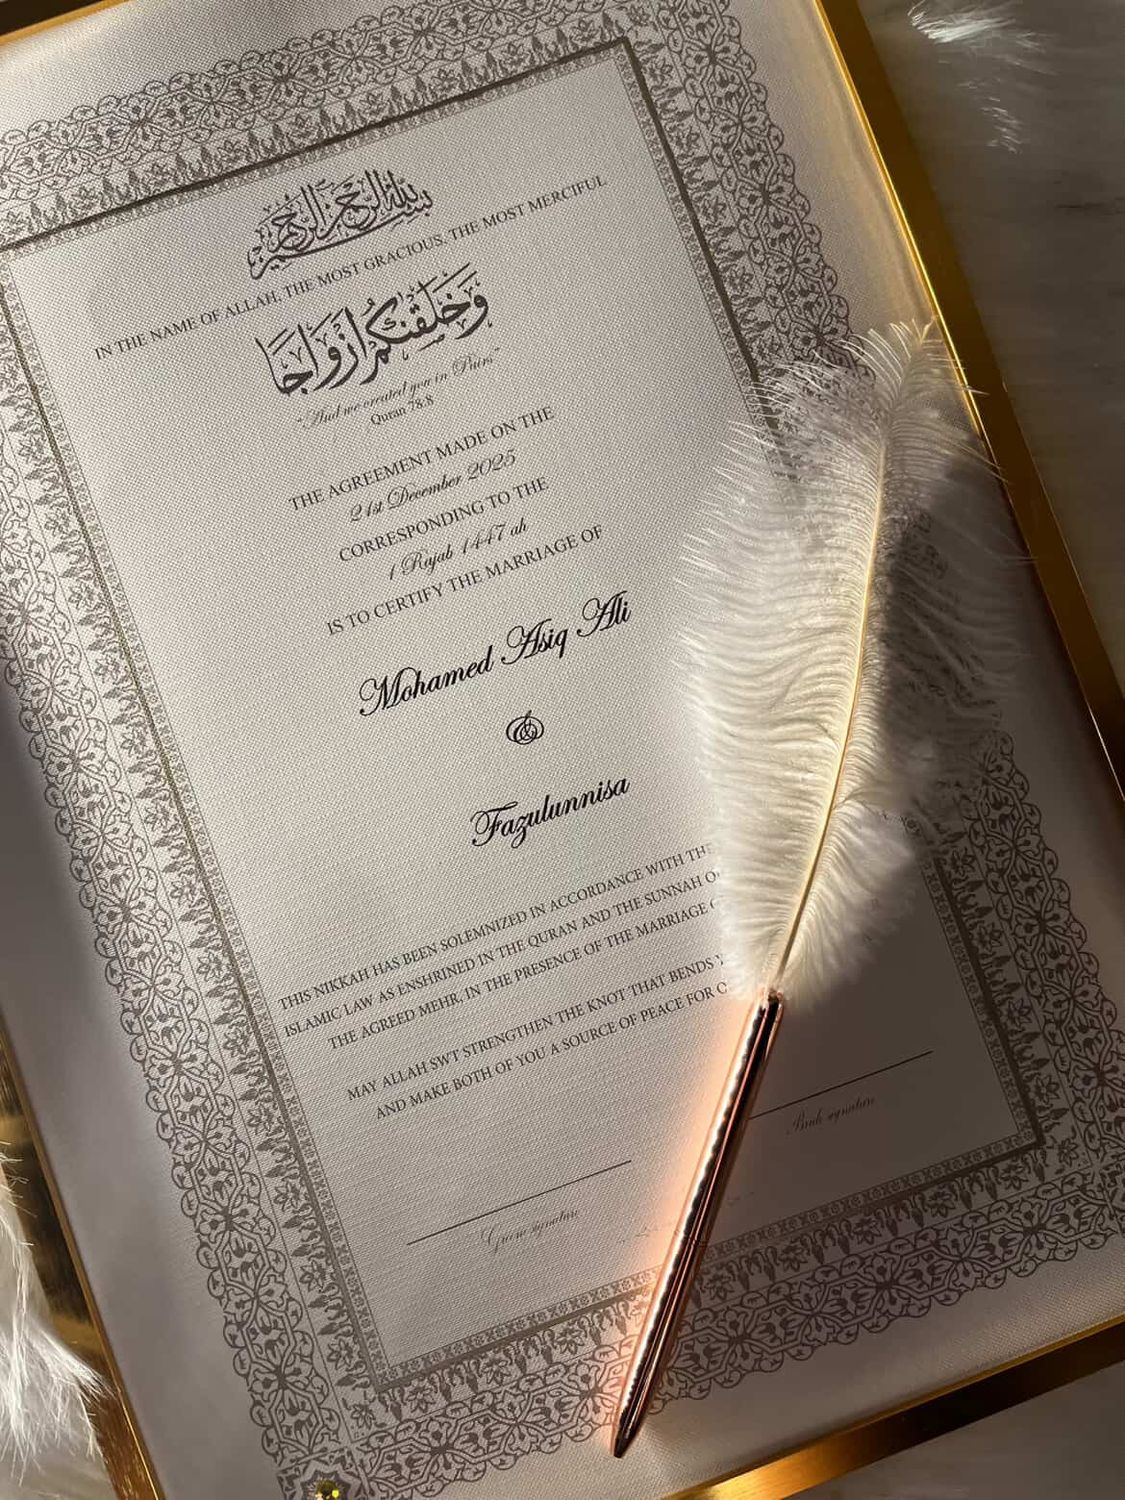 بسم الله الرحمن الرحيم
IN THE NAME OF ALLAH, THE MOST GRACIOUS, THE MOST MERCIFUL
وَخَلَقْنَٰكُمْ أَزْوَٰجًا
"And we created you in Pairs"
Quran 78:8
THE AGREEMENT MADE ON THE
21st December 2025
CORRESPONDING TO THE
1 Rajab 1447 ah
IS TO CERTIFY THE MARRIAGE OF
Mohamed Asiq Ali
&
Fazulunnisa
THIS NIKKAH HAS BEEN SOLEMNIZED IN ACCORDANCE WITH THE
ISLAMIC LAW AS ENSHRINED IN THE QURAN AND THE SUNNAH
THE AGREED MEHR, IN THE PRESENCE OF THE MARRIAGE
MAY ALLAH SWT STRENGTHEN THE KNOT THAT BENDS
AND MAKE BOTH OF YOU A SOURCE OF PEACE FOR
Bride signature
Groom signature